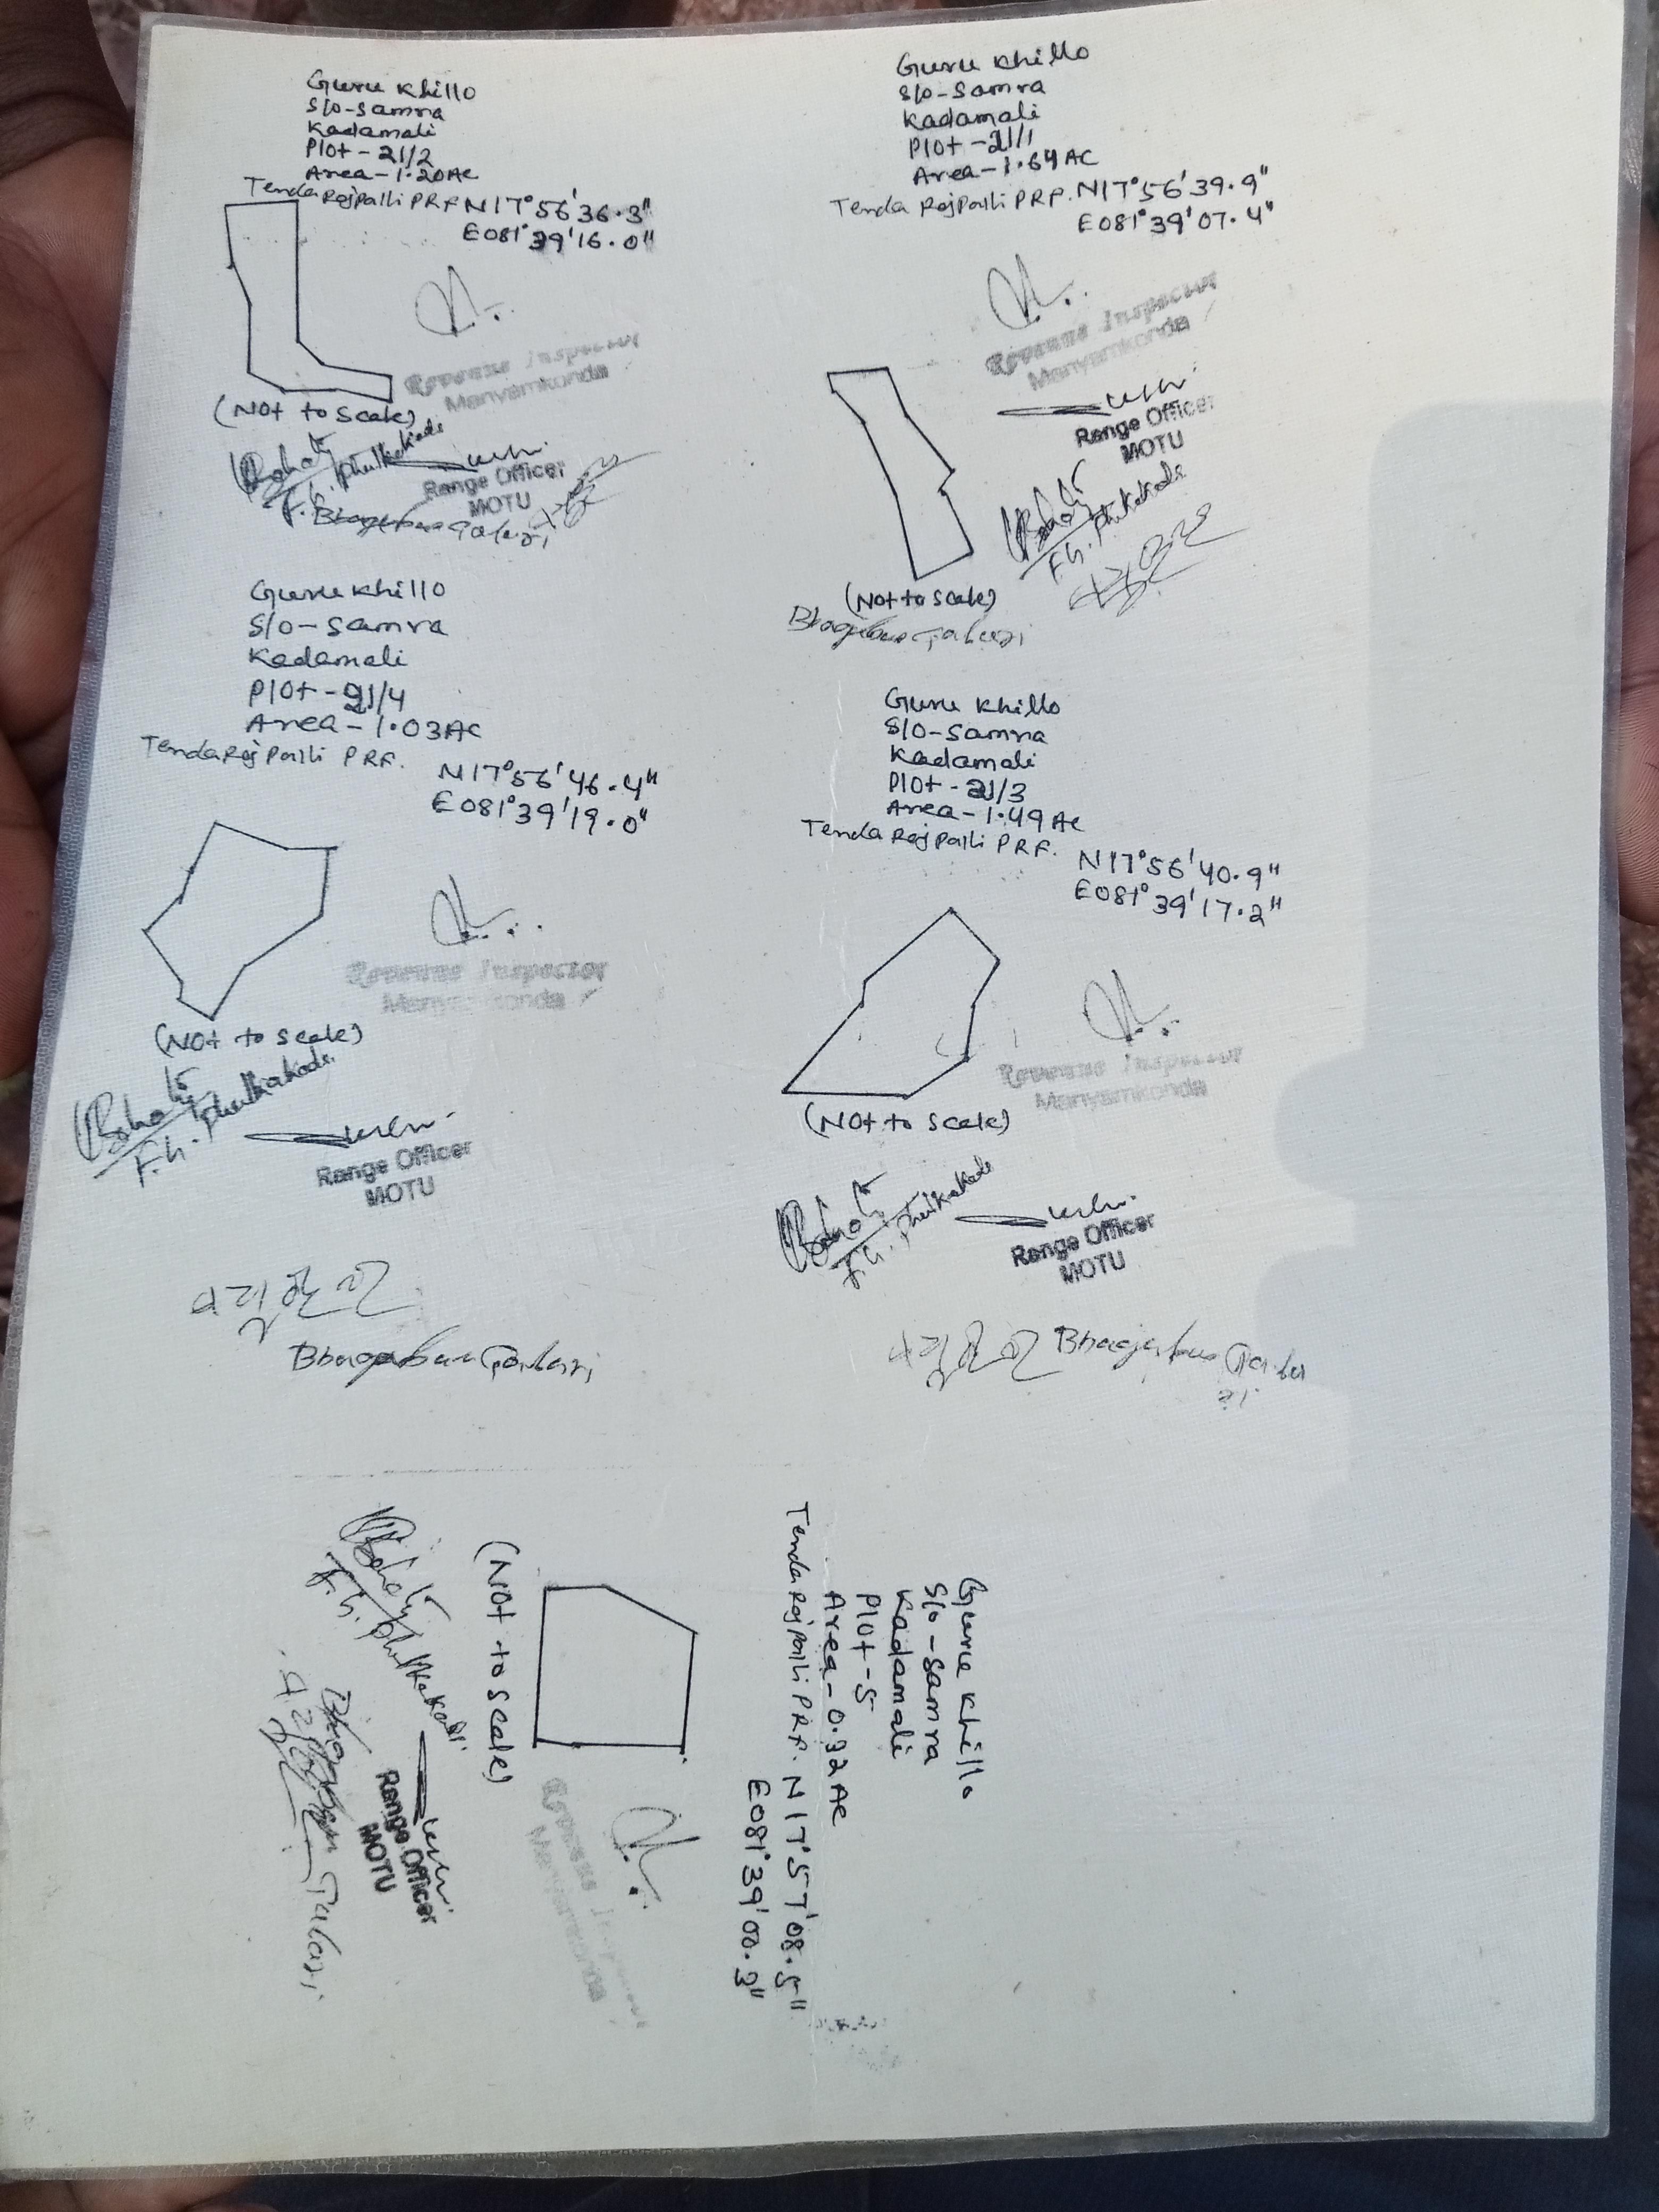 Guru Khillo
S/o-Samra
Kadamali
Plot-21/2
Area-1.20Ac
TendaRajPalli PRF N17°56'36.3"
E081°39'16.0"
Revenue Inspector
Manyamkonda
(Not to Scale)
Range Officer
MOTU
Guru Khillo
S/o-Samra
Kadamali
Plot-21/1
Area-1.64AC
Tenda RajPalli PRF. N17°56'39.9"
E081°39'07.4"
Revenue Inspector
Manyamkonda
Range Officer
MOTU
(Not to Scale)
Guru Khillo
S/o-Samra
Kadamali
Plot-21/4
Area-1.03AC
TendaRajPalli PRF.
N17°56'46.4"
E081°39'19.0"
Revenue Inspector
Manyamkonda
(Not to Scale)
Range Officer
MOTU
Guru Khillo
S/o-Samra
Kadamali
Plot-21/3
Area-1.49Ac
Tenda RajPalli PRF.
N17°56'40.9"
E081°39'17.2"
Revenue Inspector
Manyamkonda
(Not to Scale)
Range Officer
MOTU
Guru Khillo
S/o-Samra
Kadamali
Plot-5
Area-0.32Ac
TendaRajPalli PRF. N17°57'08.5"
E081°39'00.3"
Revenue Inspector
Manyamkonda
(Not to Scale)
Range Officer
MOTU